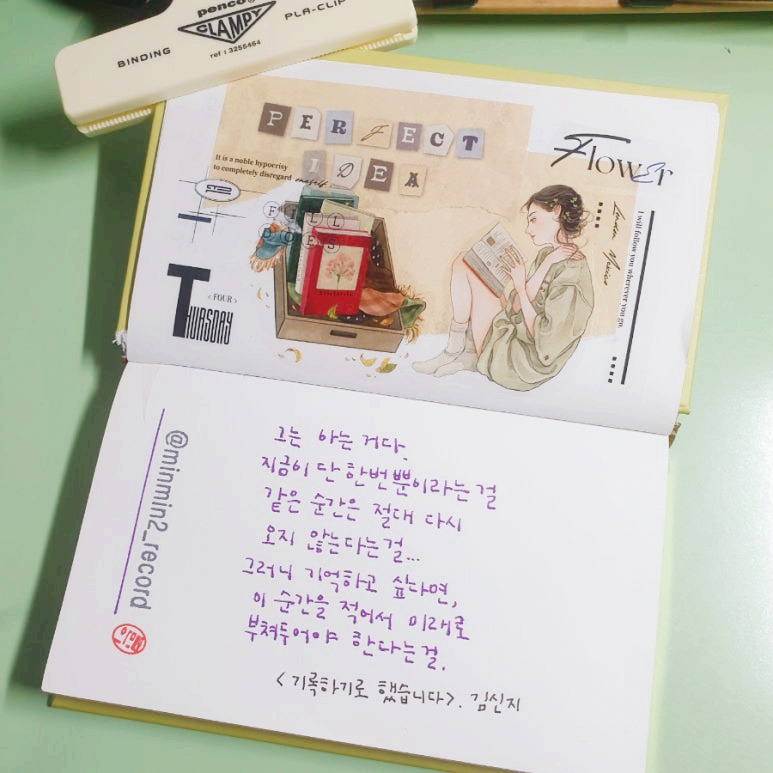 penco®
CLAMPY
BINDING
PLA-CLIP
ref : 3255464
PERFECT
IDEA
It is a noble hypocrisy
to completely disregard oneself
Flower
FULL
DOES
I will follow you wherever you go.
< FOUR >
THURSDAY
그는 아는 거다.
지금이 단 한번뿐이라는 걸
같은 순간은 절대 다시
오지 않는다는 걸...
그러니 기억하고 싶다면,
이 순간을 적어서 미래로
부쳐두어야 한다는 걸.
<기록하기로 했습니다>. 김신지
@minmin2_record